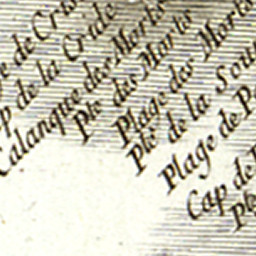 de Cris
de la Cride
Calanque des Morts
Pte des Morts
Plage des Morts
Pte de la Sour
Plage de Po
Cap de
Pte